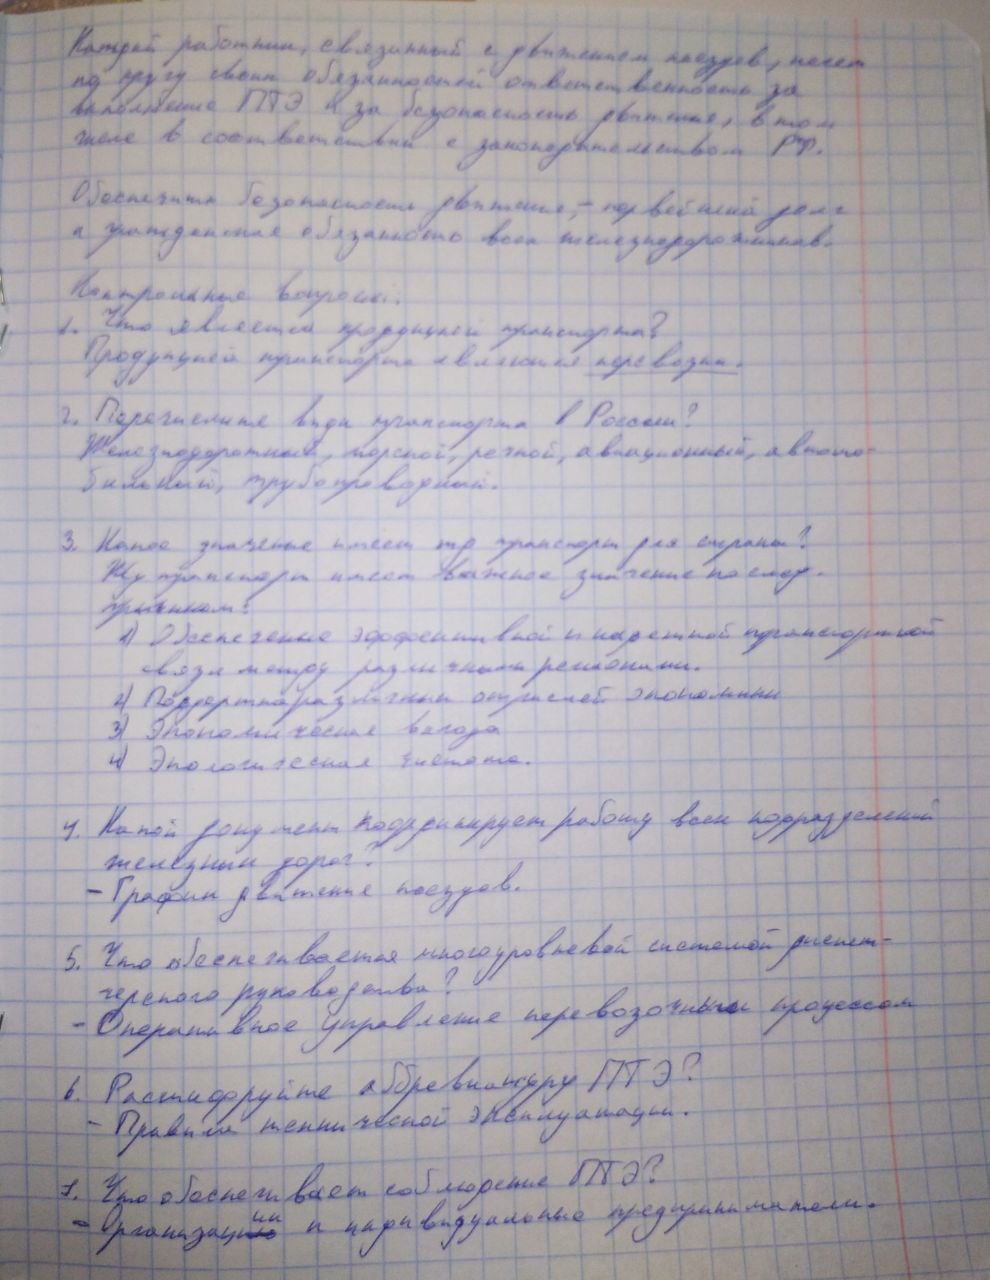 Каждый работник, связанный с движением поездов, несет
по кругу своих обязанностей ответственность за
выполнение ПТЭ и за безопасность движения, в том
числе в соответствии с законодательством РФ.
Обеспечить безопасность движения, - первейший долг
и гражданская обязанность всех железнодорожников.
Контрольные вопросы:
1. Что является продукцией транспорта?
Продукцией транспорта являются перевозки.
2. Перечислите виды транспорта в России?
Железнодорожный, морской, речной, авиационный, автомо-
бильный, трубопроводный.
3. Какое значение имеет жд транспорт для страны?
Жд транспорт имеет важное значение по след.
причинам:
1) Обеспечение эффективной и надежной транспортной
связи между различными регионами.
2) Поддержка различных отраслей экономики
3) Экономическая выгода
4) Экологическая чистота.
4. Какой документ координирует работу всех подразделений
железных дорог?
- График движения поездов.
5. Что обеспечивается многоуровневой системой диспет-
черского руководства?
- Оперативное управление перевозочным процессом
6. Расшифруйте аббревиатуру ПТЭ?
- Правила технической эксплуатации.
7. Что обеспечивает соблюдение ПТЭ?
- Организации и индивидуальные предприниматели.